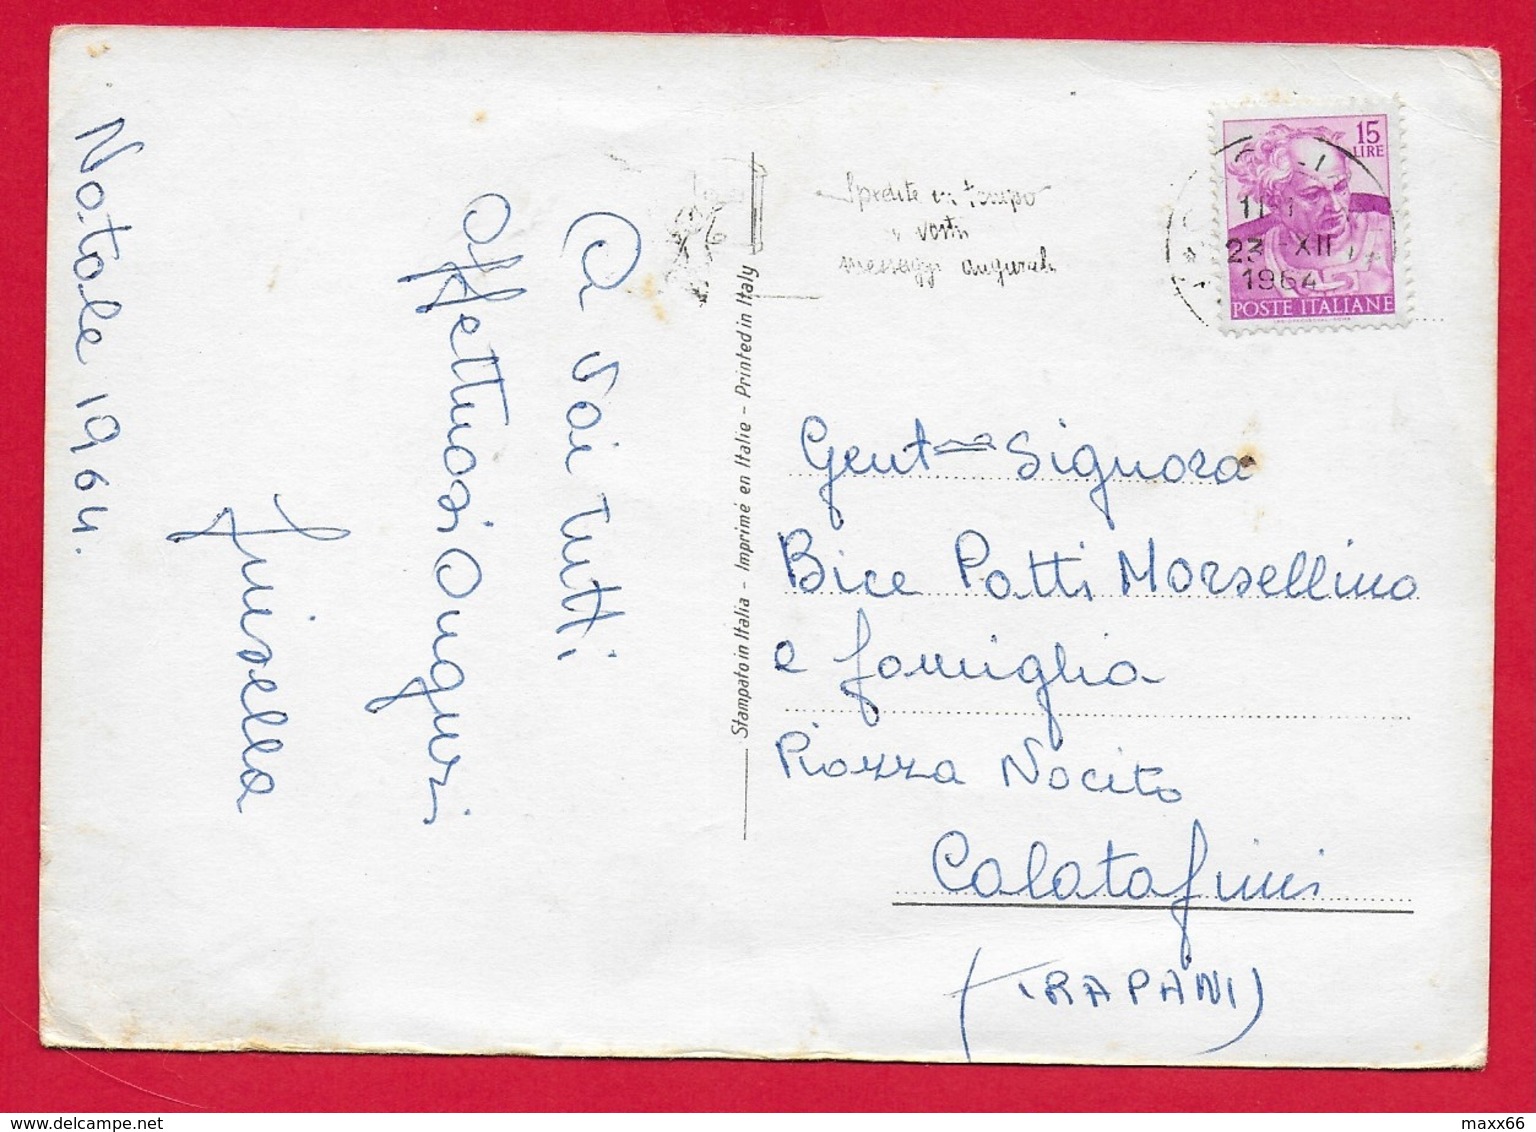 Natale 1964.
A voi tutti
affettuosi auguri
Giusella
Stampato in Italia - Imprimé en Italie - Printed in Italy
Spedite in tempo
i vostri
messaggi augurali
15
LIRE
23 -XII
1964
POSTE ITALIANE
Gent ma Signora
Bice Patti Morsellino
e famiglia
Piazza Nocito
Calatafimi
(TRAPANI)
www.delcampe.net
maxx66